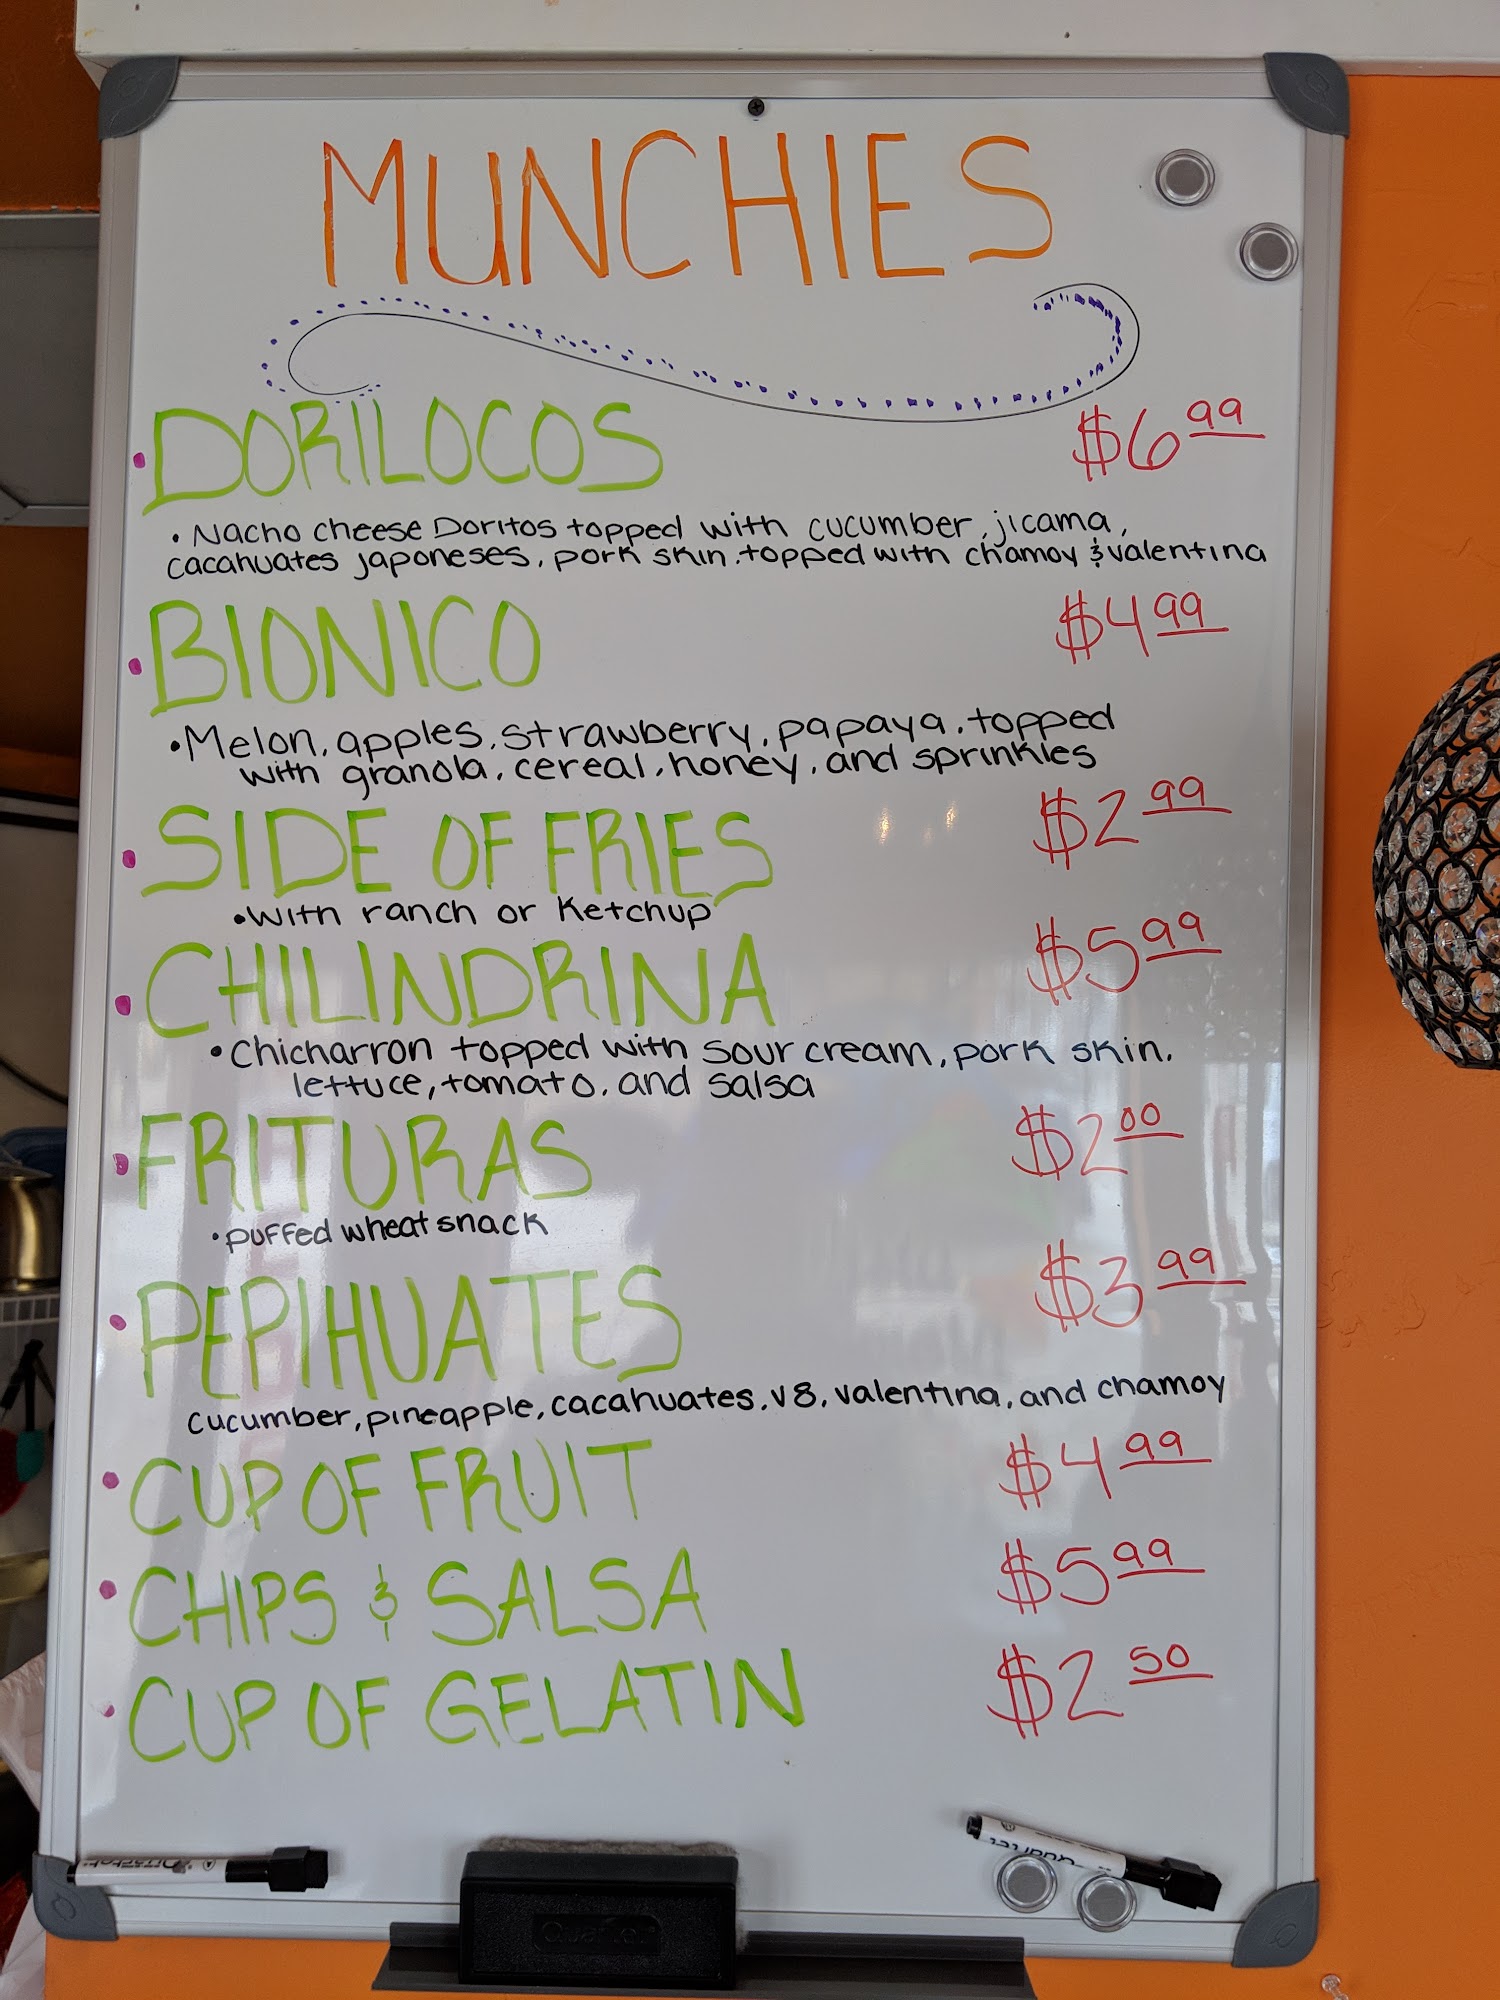 MUNCHIES
• DORILOCOS $6 99
• Nacho cheese Doritos topped with cucumber, jicama,
cacahuates japoneses, pork skin. topped with chamoy & valentina
• BIONICO $4 99
• Melon, apples, strawberry, papaya, topped
with granola, cereal, honey, and sprinkles
• SIDE OF FRIES $2 99
• with ranch or ketchup
• CHILINDRINA $5 99
• Chicharron topped with sour cream, pork skin,
lettuce, tomato, and salsa
• FRITURAS $2 00
• puffed wheat snack
• PEPIHUATES $3 99
cucumber, pineapple, cacahuates, v8, valentina, and chamoy
• CUP OF FRUIT $4 99
• CHIPS & SALSA $5 99
• CUP OF GELATIN $2 50
Quartet
Quartet
Quartet